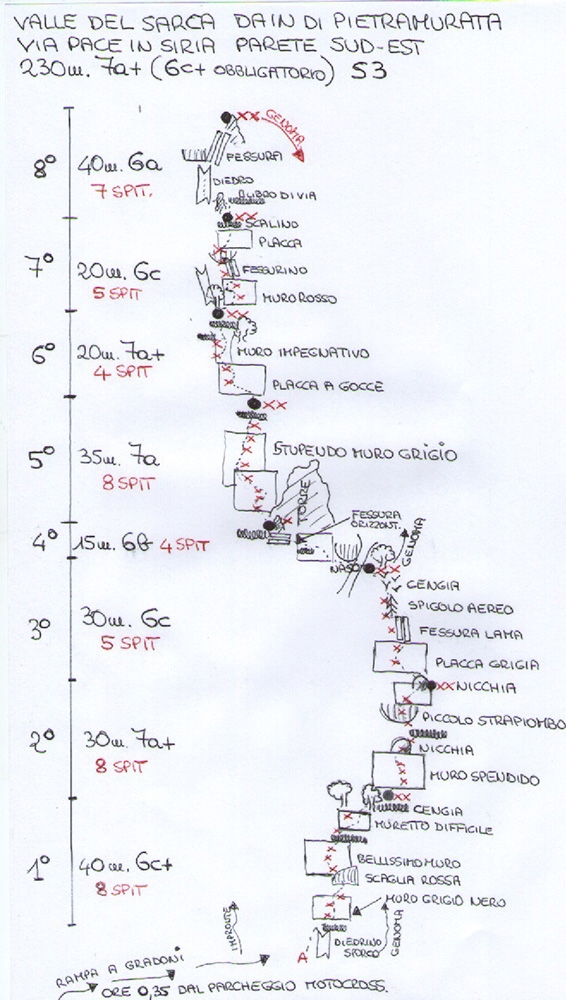 VALLE DEL SARCA DAIN DI PIETRAMURATA
VIA PACE IN SIRIA PARETE SUD-EST
230m. 7a+ (6c+ OBBLIGATORIO) S3
GENOMA
8° 40m. 6a
7 SPIT.
FESSURA
DIEDRO
LIBRO DI VIA
SCALINO
PLACCA
7° 20m. 6c
5 SPIT
FESSURINO
MURO ROSSO
6° 20m. 7a+
4 SPIT
MURO IMPEGNATIVO
PLACCA A GOCCE
5° 35m. 7a
8 SPIT
STUPENDO MURO GRIGIO
TORRE
FESSURA
ORIZZONT.
4° 15m. 6b 4 SPIT
NASO
GENOMA
CENGIA
SPIGOLO AEREO
3° 30m. 6c
5 SPIT
FESSURA LAMA
PLACCA GRIGIA
NICCHIA
PICCOLO STRAPIOMBO
2° 30m. 7a+
8 SPIT
NICCHIA
MURO SPENDIDO
CENGIA
MURETTO DIFFICILE
1° 40m. 6c+
8 SPIT
BELLISSIMO MURO
SCAGLIA ROSSA
MURO GRIGIO NERO
IMPRONTE
A
DIEDRINO
SPORCO
GENOMA
RAMPA A GRADONI
ORE 0,35 DAL PARCHEGGIO MOTOCROSS.